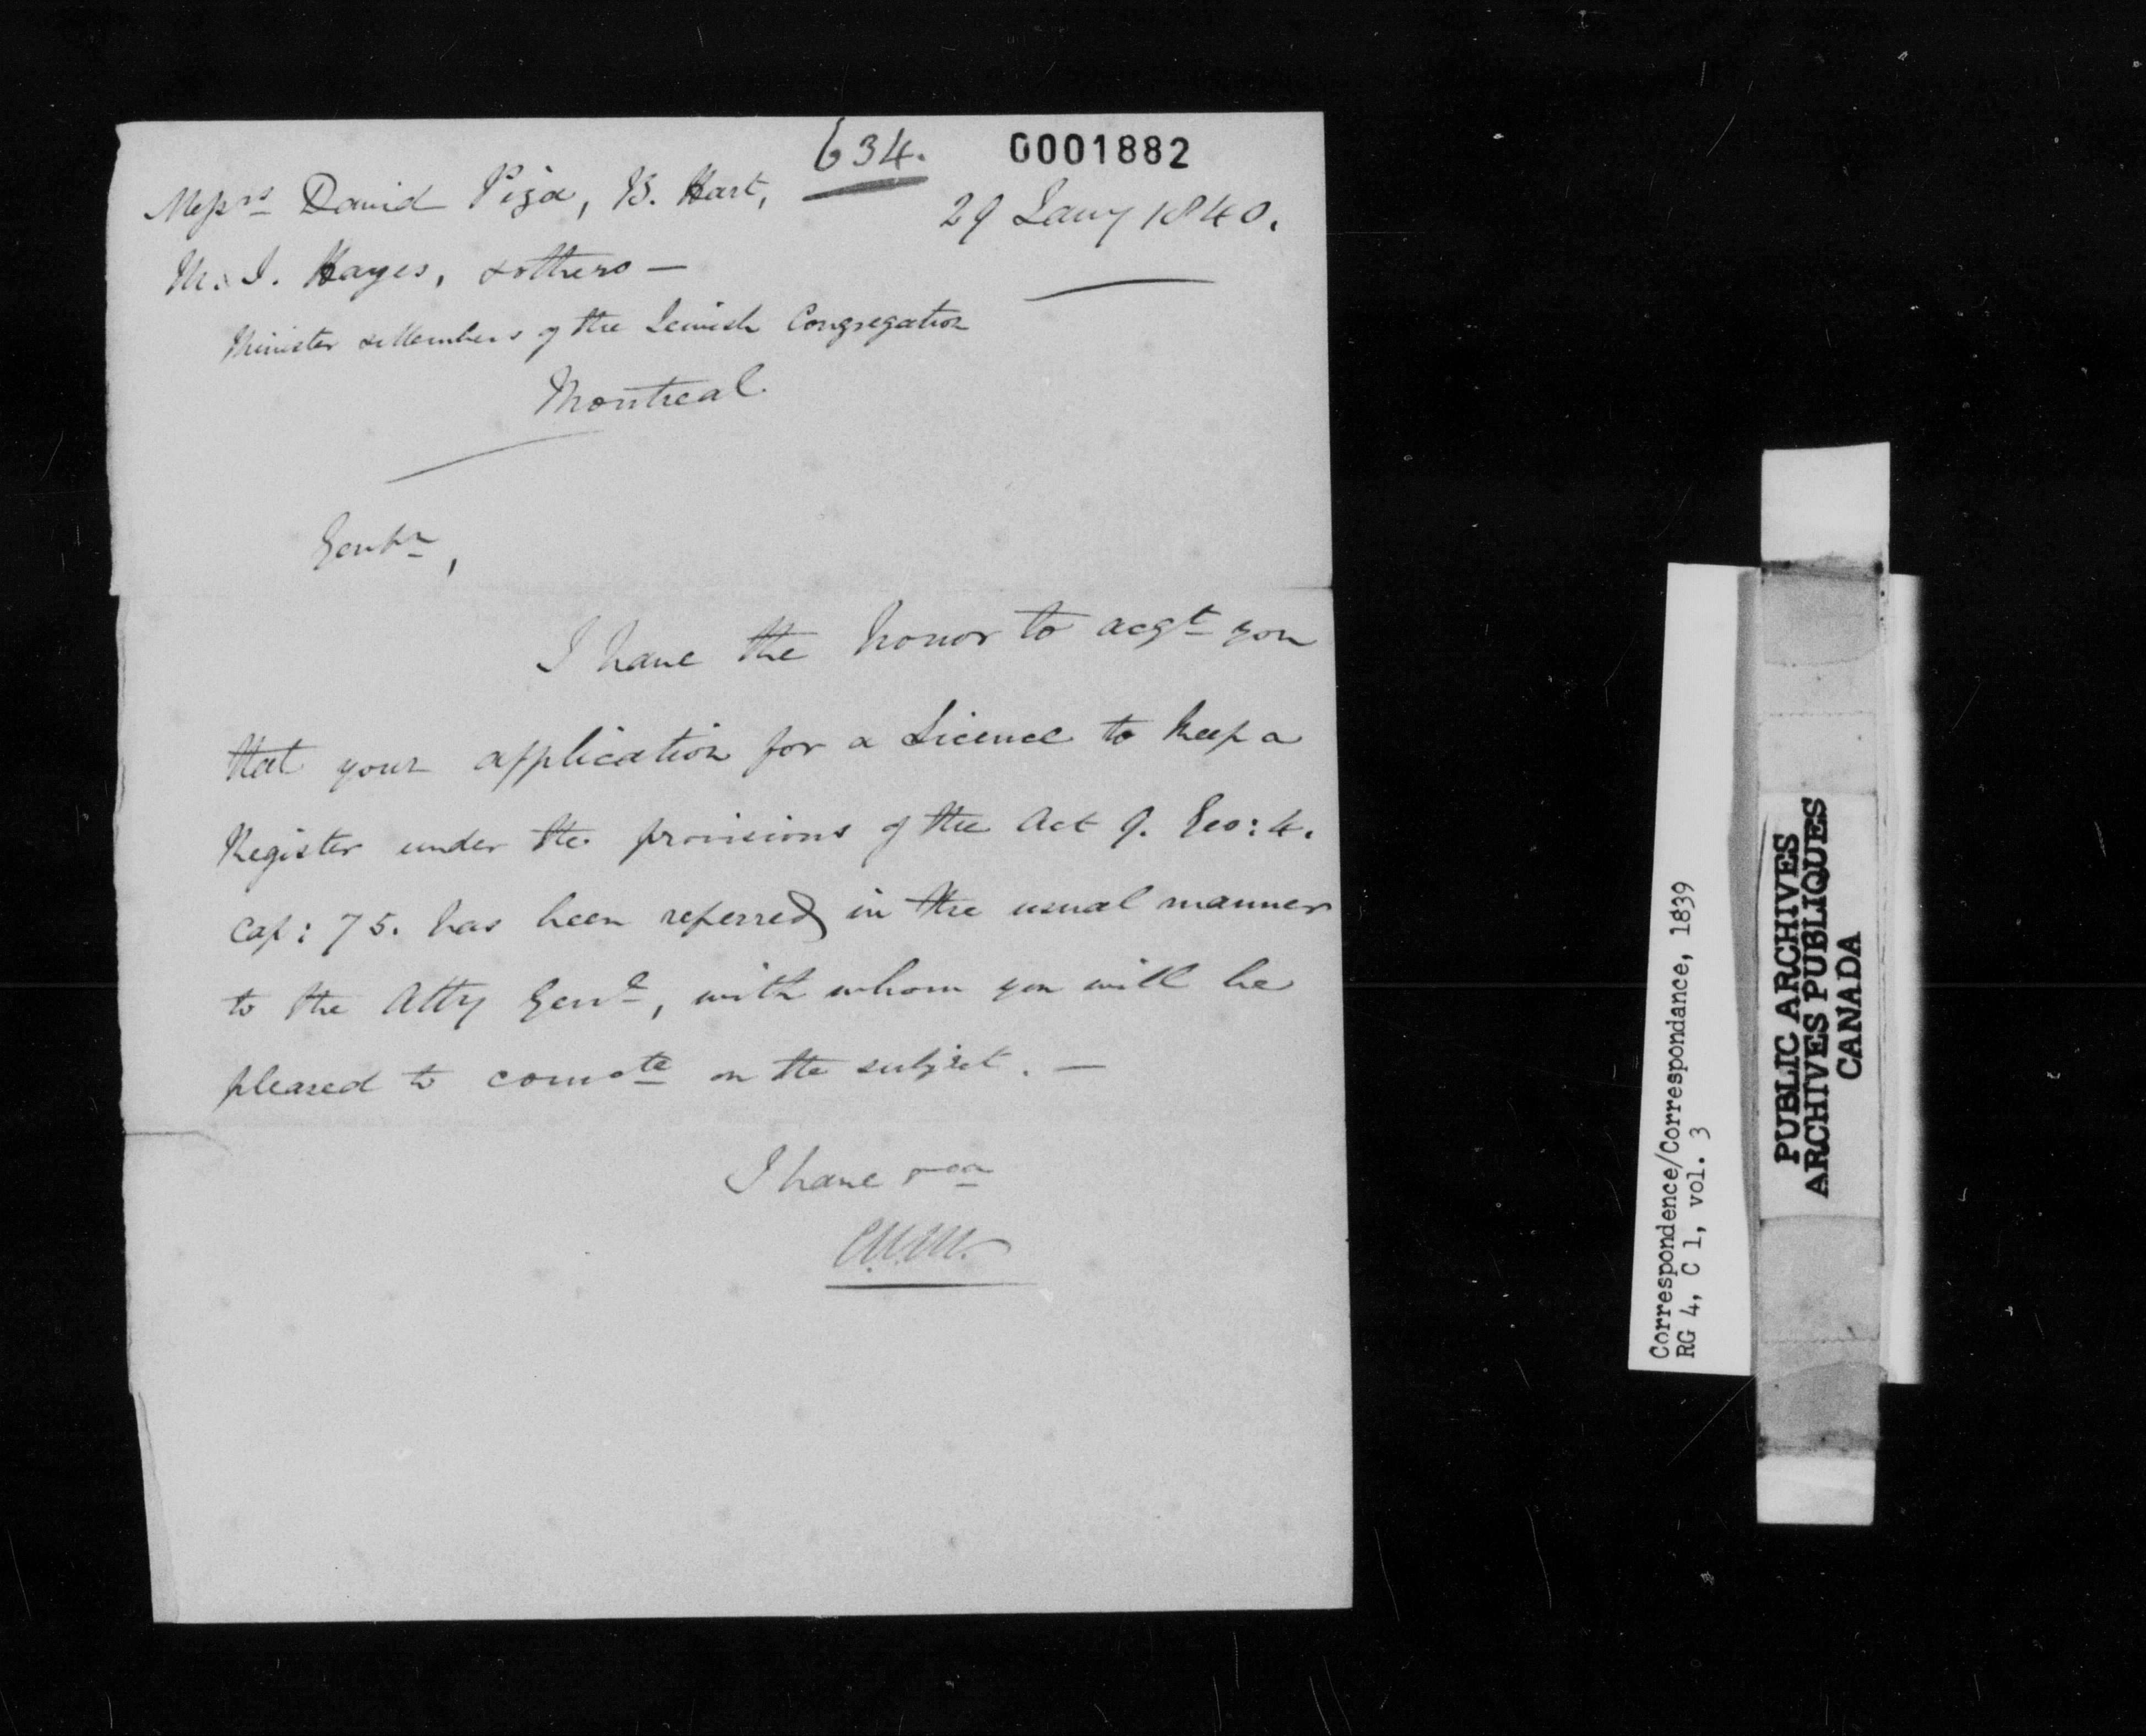 634. 0001882
Messrs David Piza, B. Hart,
29 Jany 1840.
M. I. Hayes, & others —
Minister & Members of the Jewish Congregation
Montreal.
Gentn,
I have the honor to acqt you
that your application for a Licence to keep a
Register under the provisions of the Act 9. Geo: 4.
Cap: 75. has been referred in the usual manner
to the Atty Genl, with whom you will be
pleased to comcte on the subject. —
I have &ca
Correspondence/Correspondance, 1839
RG 4, C 1, vol. 3
PUBLIC ARCHIVES
ARCHIVES PUBLIQUES
CANADA